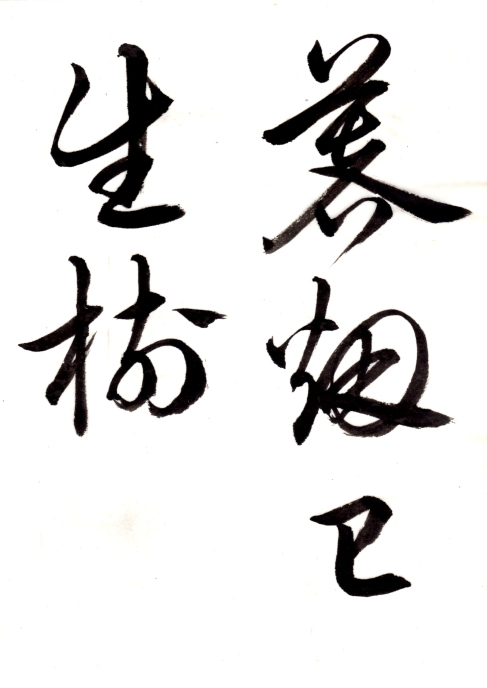 暮烟已
生樹